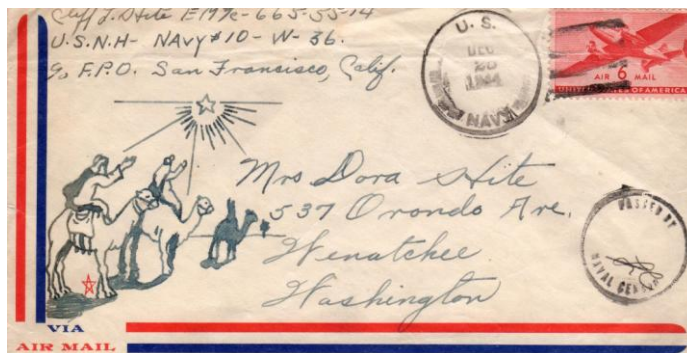 Cliff J. Hite EM 3/c - 665-55-14
U.S.N.H- NAVY #10- W- 36.
% F.P.O. San Francisco, Calif.
U. S.
DEC
20
1944
NAVY
AIR 6 MAIL
UNITED STATES OF AMERICA
Mrs Dora Hite
537 Orondo Ave.
Wenatchee
Washington
PASSED BY
NAVAL CENSOR
VIA
AIR MAIL